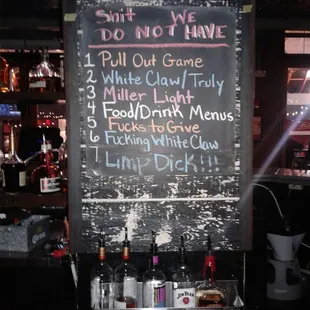 Shit WE
DO NOT HAVE
1 Pull Out Game
2 White Claw/Truly
3 Miller Light
4 Food/Drink Menus
5 Fucks to Give
6 Fucking White Claw
7 Limp Dick!!!
JIM BEAM